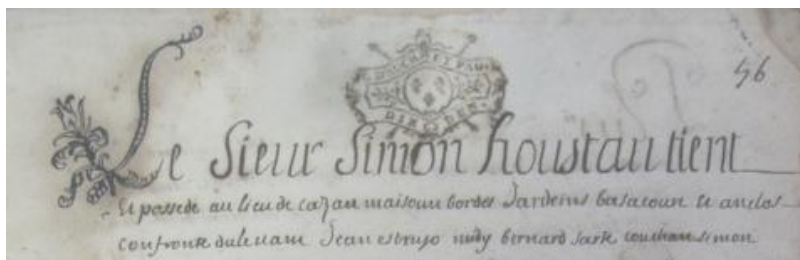 56
Le Sieur Simon houstau tient
Et possede au lieu de cazan maisoun bordes Jardeins basacour et anclos
Confronte du levant Jean estrujo midy bernard Sark couchan simon